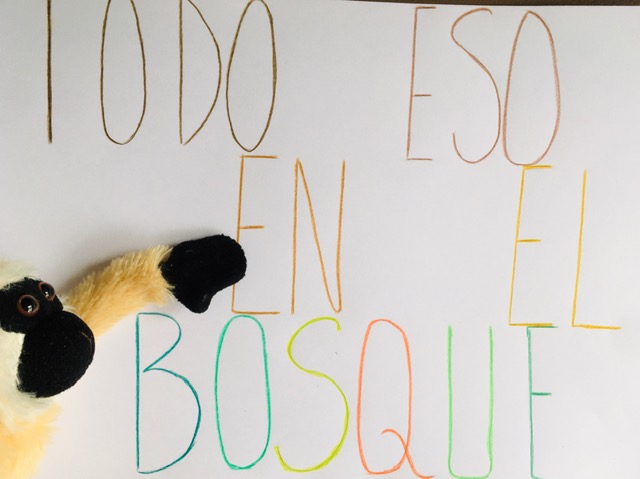 TODO ESO
EN EL
BOSQUE